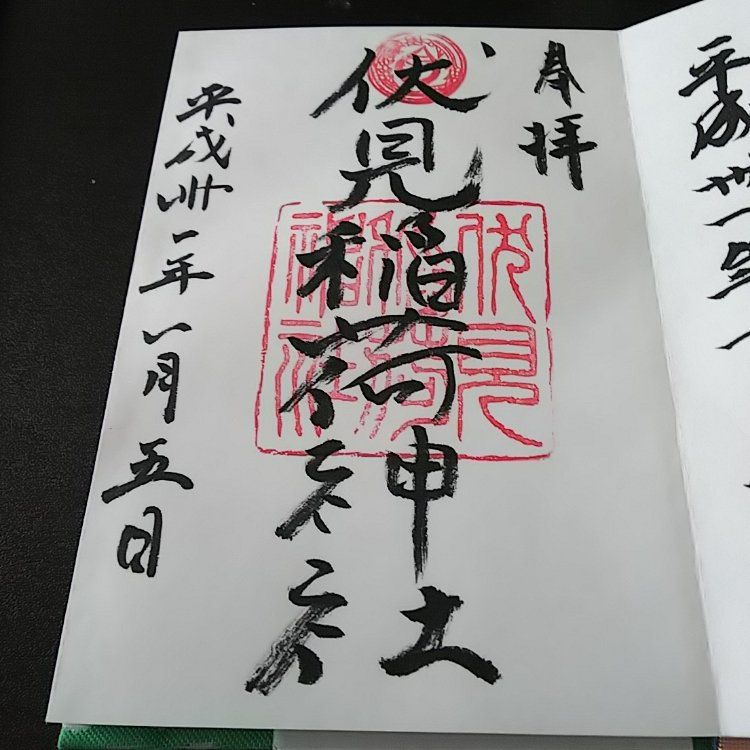 奉拝
伏見稲荷神社
平成卅一年一月五日
伏見
稲荷
神社
平成卅一年一